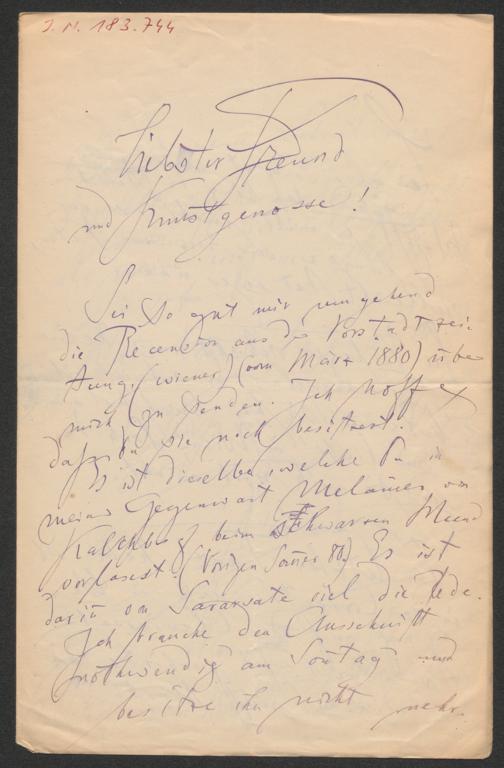 J. N. 183.744
Liebster Freund
und Kunstgenosse!
Sei so gut mir umgehend
die Recension aus der Vorstadtzei-
tung (wiener) (vom März 1880) über
mich zu senden. Ich hoffe
daß Du sie noch besitzest.
Es ist dieselbe, welche Du in
meiner Gegenwart von
Kalchberg beim schwarzen
vorlasest. (Vorigen Somer 80) Es ist
darin von Sarasate viel die Rede.
Ich brauche den Ausschnitt
nothwendig am Sontag und
besitze ihn nicht mehr.